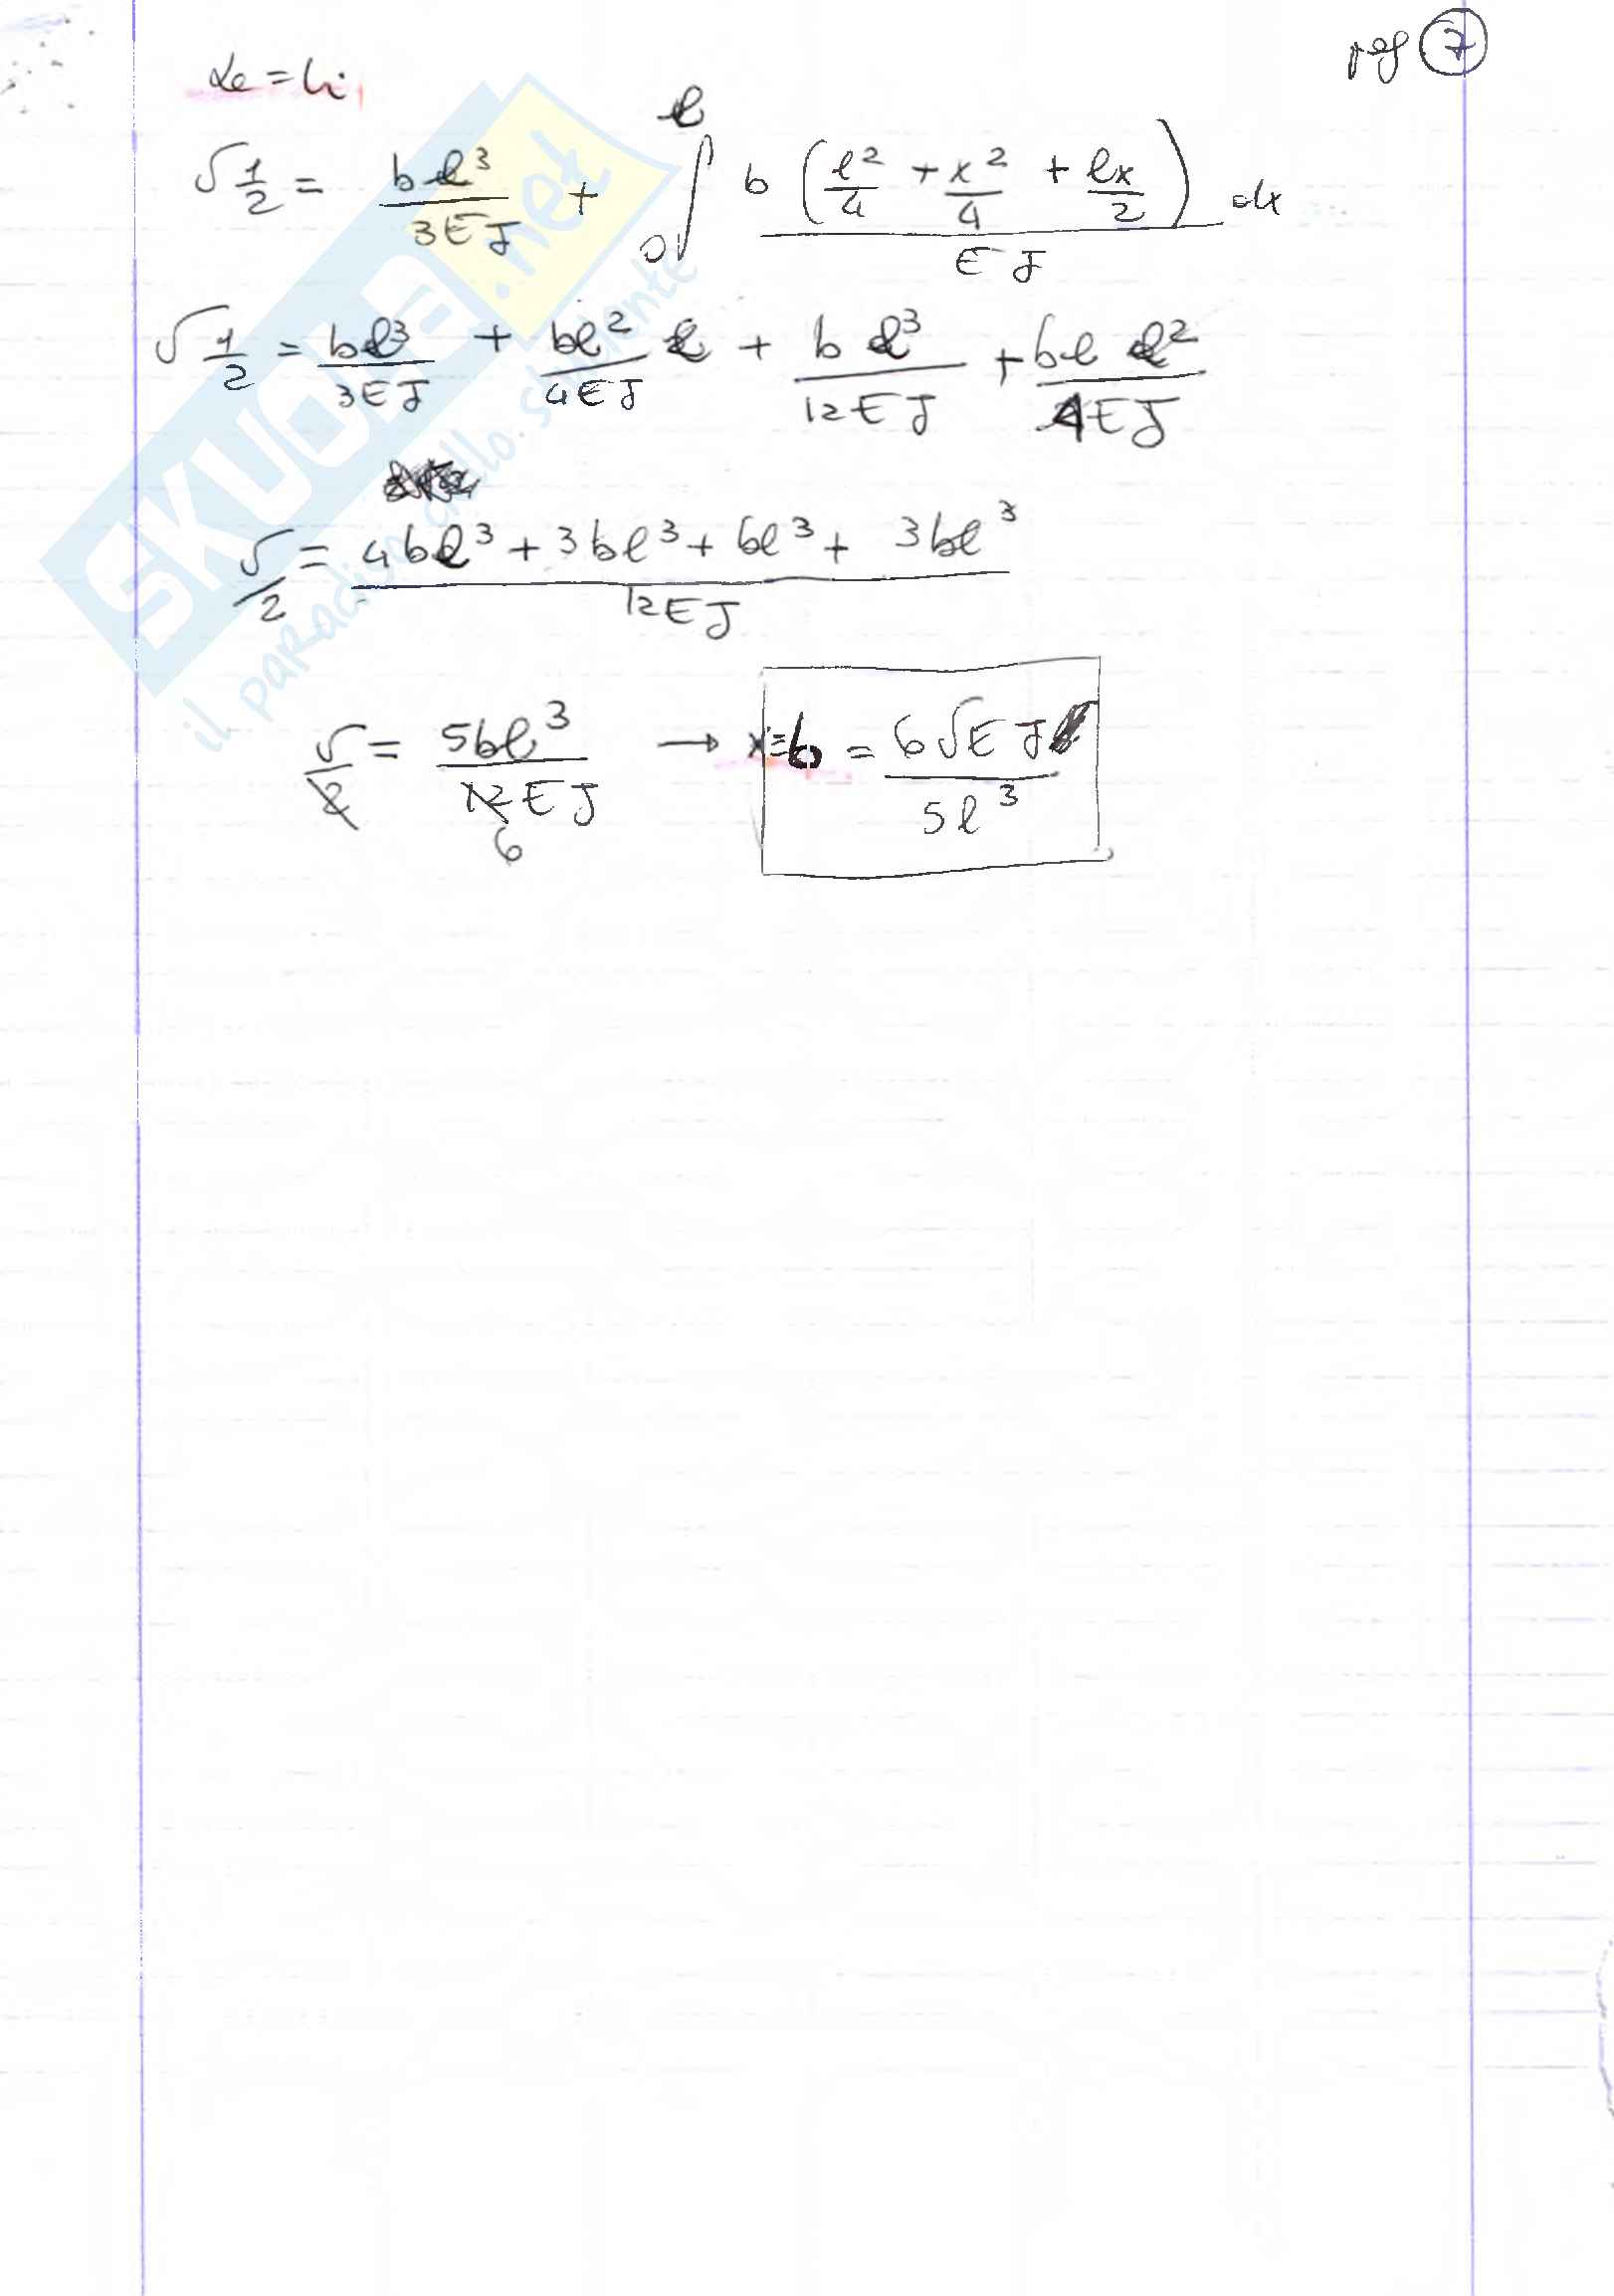 pag 7
Le = Li
δ 1/2 = bl³/3EJ + ∫₀ˡ b (l²/4 + x²/4 + lx/2)/EJ dx
δ 1/2 = bl³/3EJ + bl²/4EJ l + b l³/12EJ + bl l²/4EJ
δ/2 = (4bl³ + 3bl³ + bl³ + 3bl³)/12EJ
δ/2 = 5bl³/12EJ → x = b = 6δEJ/5l³
6
SKUOLa.net
il paradiso dello studente